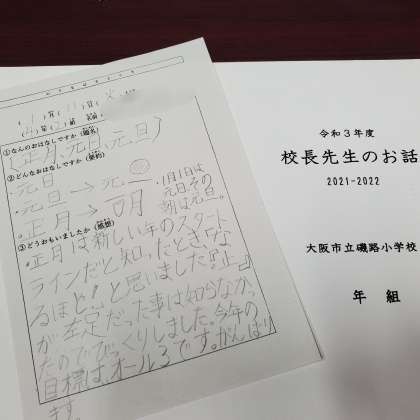 1月11日(火)
①なんのおはなしですか(題名)
(正月、元日、元旦)
②どんなおはなしですか(要約)
元日
元旦→元旦
正月→
1月1日は
元日その
朝は元旦。
③どうおもいましたか(感想)
正月は新しい年のスタート
ラインだと知ったとき、な
るほど!と思いました。「正」
が基定だった事は知らなかっ
たのでびっくりしました。今年の
目標は、オール3です。がんばり
ます。
令和3年度
校長先生のお話
2021-2022
大阪市立磯路小学校
年 組